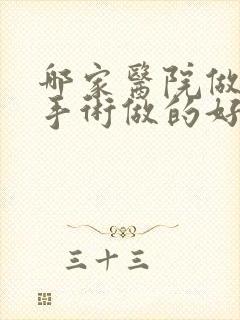 哪家醫院做
手術做的好
三十三